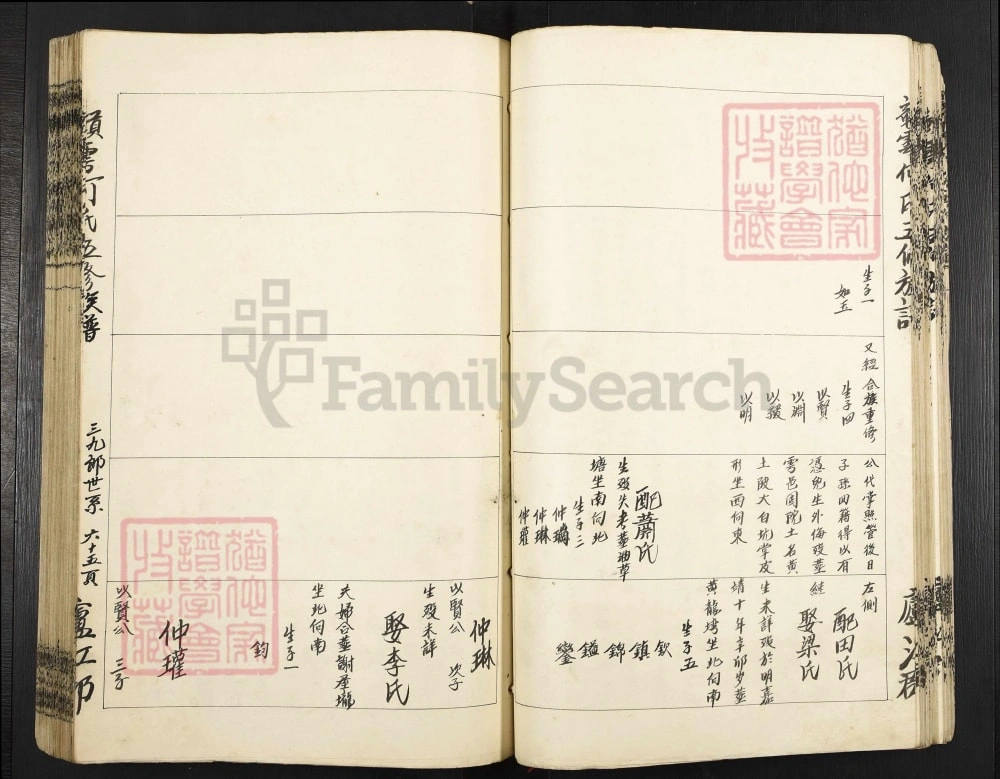 生子一
如玉
又經合族重修
生子四
以賢
以淵
以發
以明
公代掌照管後日
子孫回籍得以有
憑免生外侮歿葬
雩邑固院土名黄
土段大白坑掌皮
形坐西向東
配蕭氏
生歿失考葬油草
塘坐南向北
生子三
仲璘
仲琳
仲瓘
左側
配田氏
繼娶梁氏
生未詳歿於明嘉
靖十年辛卯歲葬
黄龍坐北向南
生子五
欽
鎮
錦
鎰
鑾
廬江郡
仲琳
以賢公 次子
生歿未詳
娶李氏
夫婦合葬謝屋壠
坐北向南
生子一
鈞
仲瓘
以賢公 三子
何氏五修族譜
三九郎世系 六十五頁
廬江郡
猶他家
譜學會
收藏
猶他家
譜學會
收藏
FamilySearch